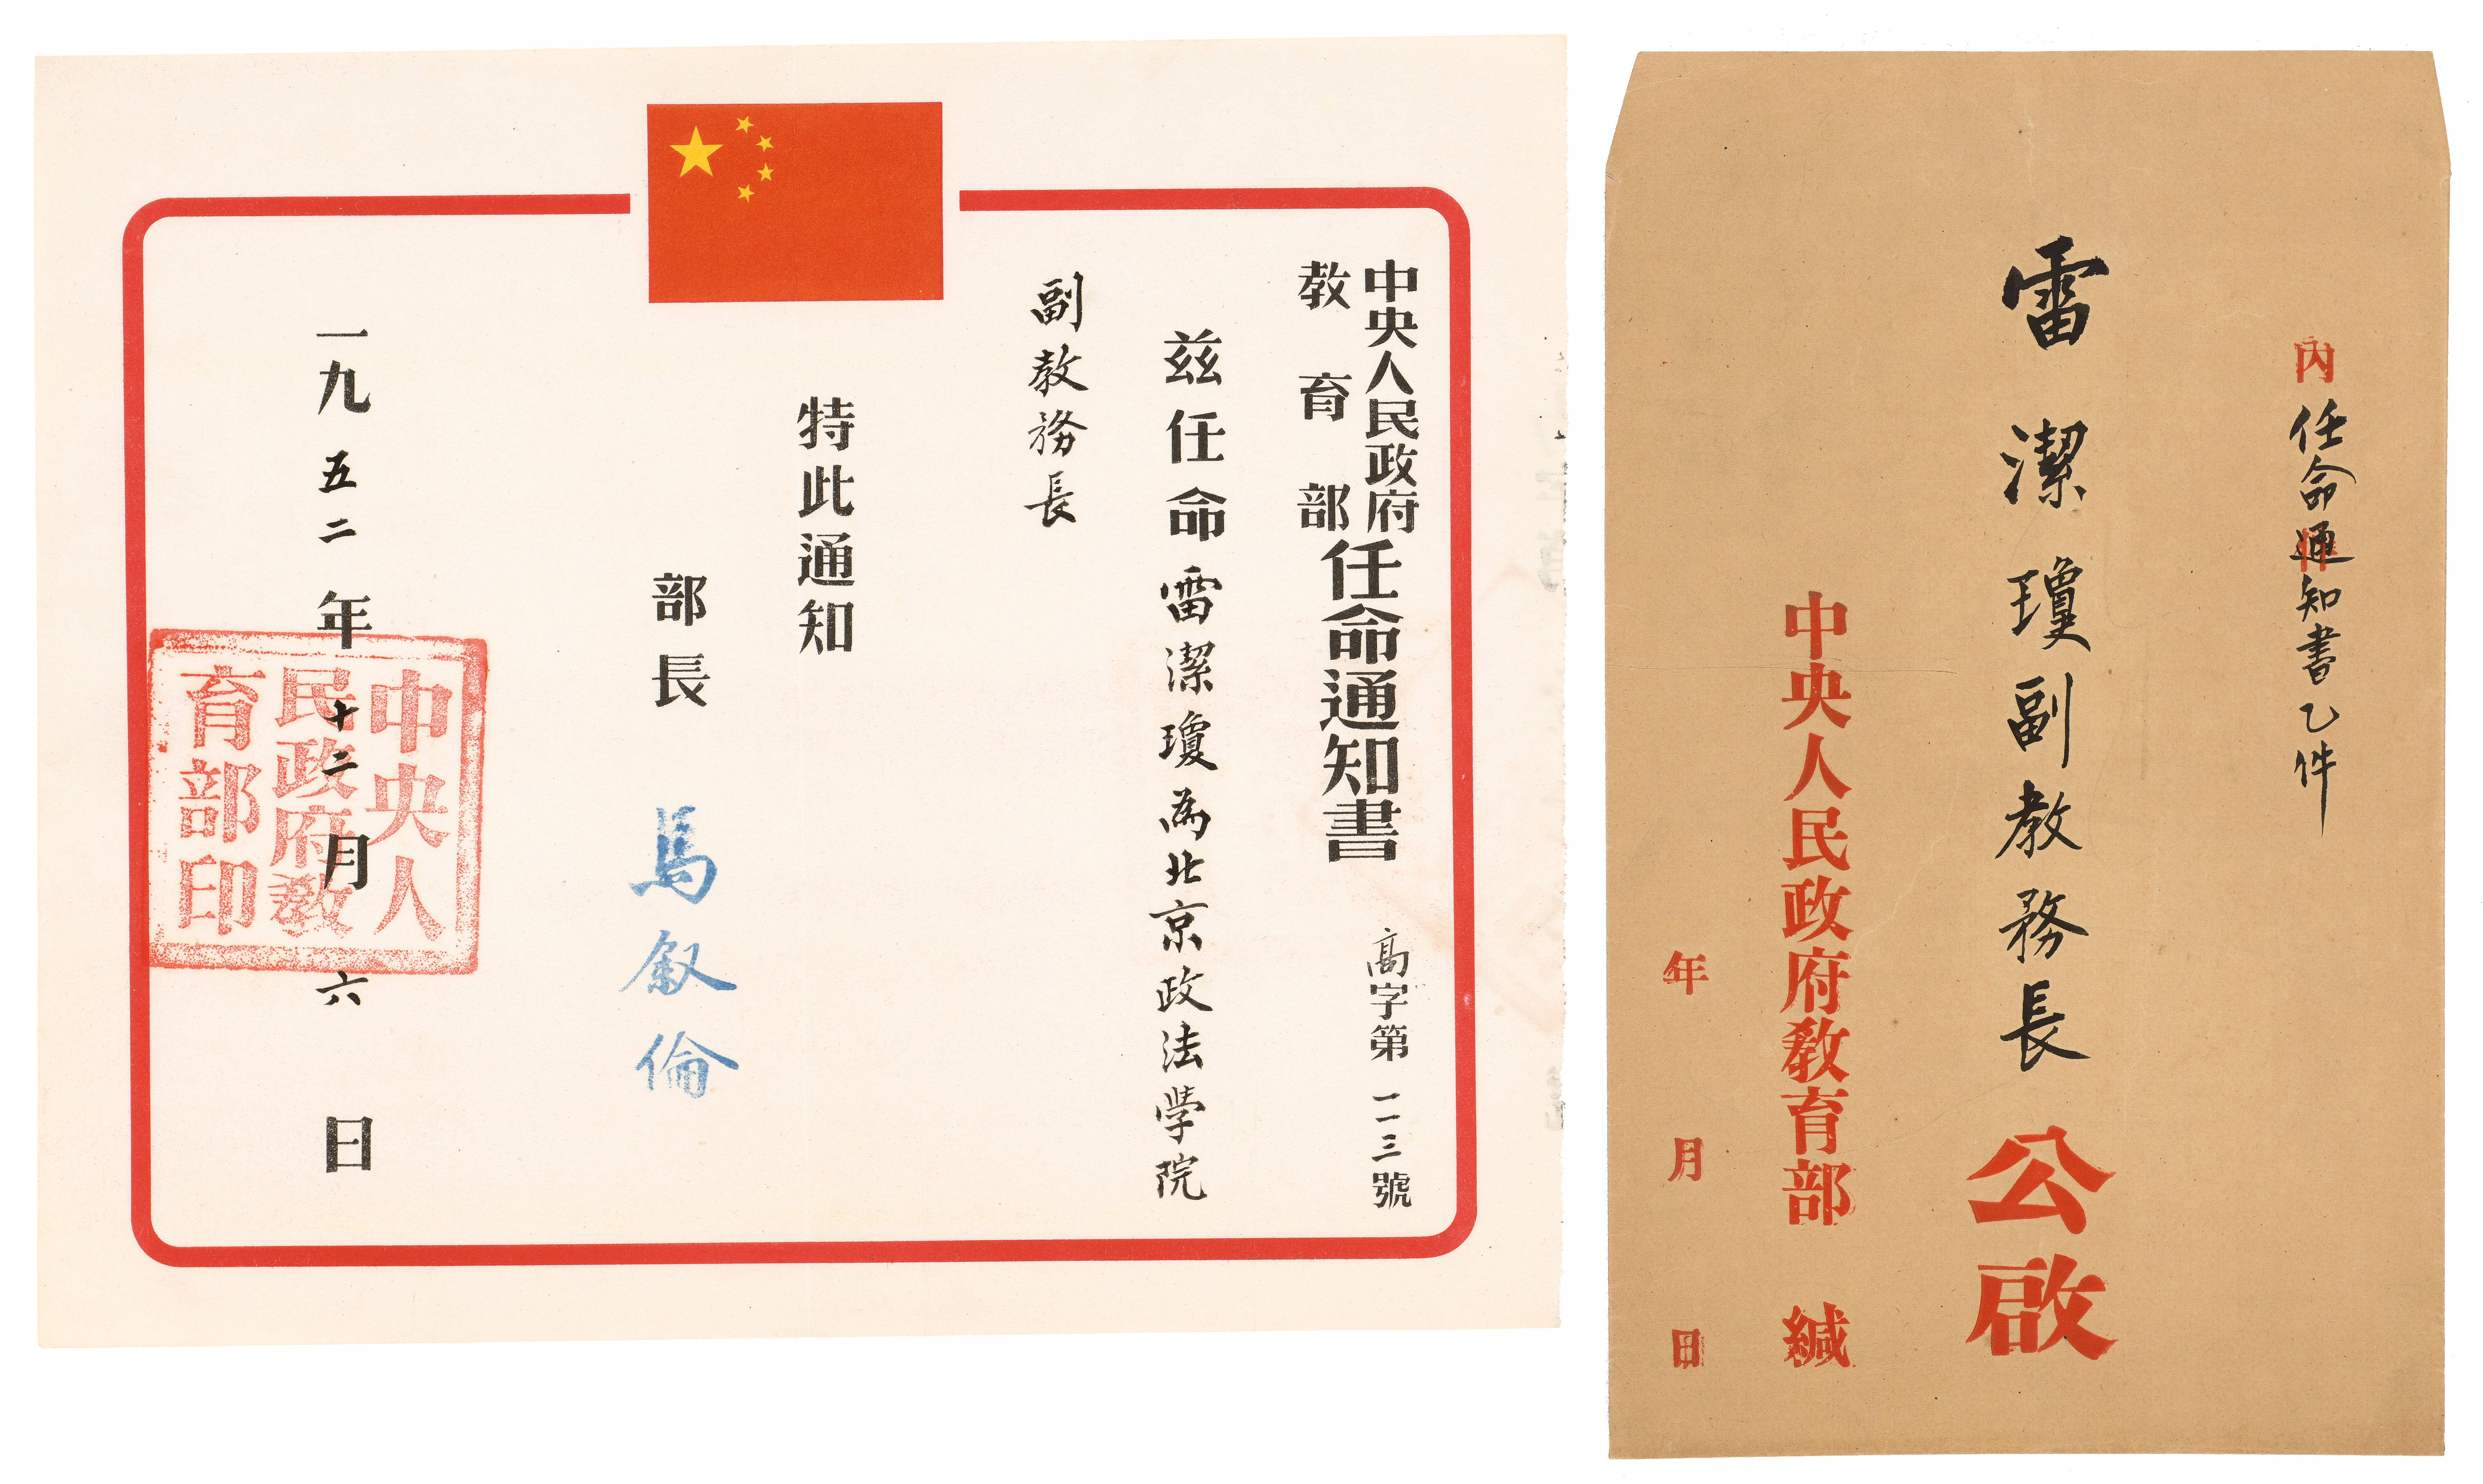 中央人民政府
教育部
任命通知書
高字第一一三號
茲任命雷潔瓊為北京政法學院
副教務長
特此通知
部長 馬叙倫
一九五二年十二月六日
中央人
民政府教
育部印
內 任命通知書乙件
件
雷潔瓊副教務長 公啟
中央人民政府教育部 緘
年 月 日